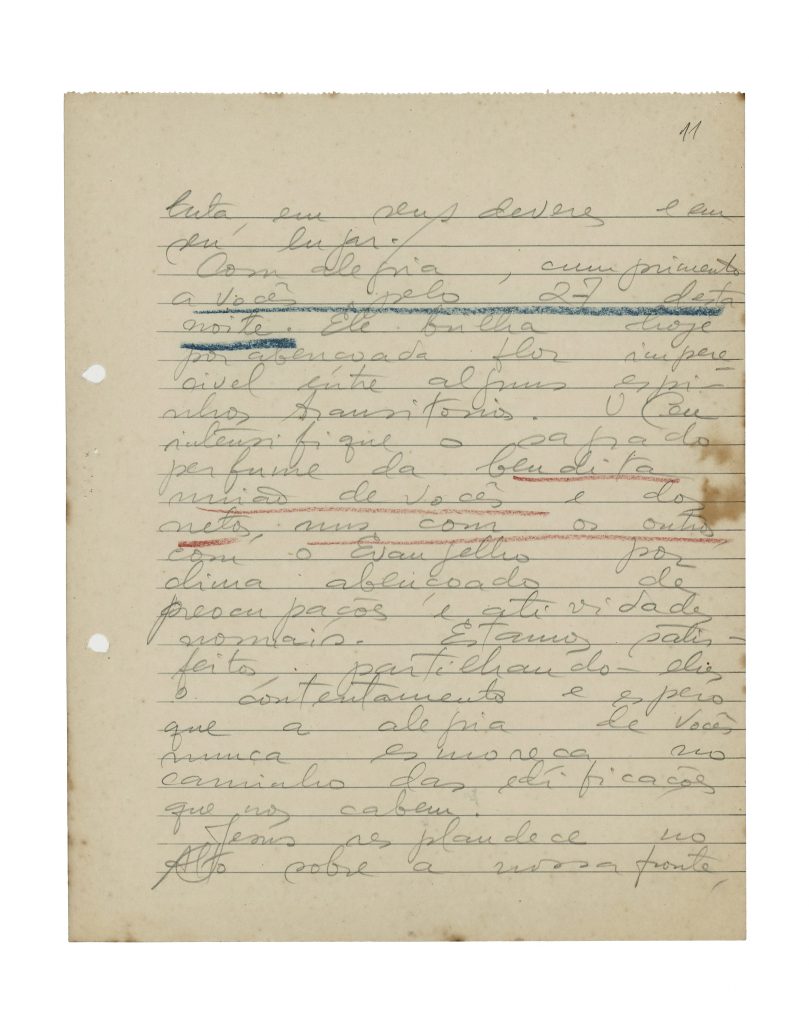 11
luta, em seus deveres e em
seu lugar.
Com alegria, cumprimento
a vocês pelo 27 desta
noite. Ele brilha hoje
por abençoada flor impere
civel entre alguns espi-
nhos transitorios. O Céu
intensifique o sagrado
perfume da bendita
união de vocês e dos
netos, uns com os outros
com o Evangelho por
clima abençoado de
preocupações e atividade
normais. Estamos satis-
feitos, partilhando-lhes
o contentamento e espero
que a alegria de vocês
nunca esmoreça no
caminho das edificações
que nos cabem.
Jesús resplandece no
Alto sobre a nossa fronte,